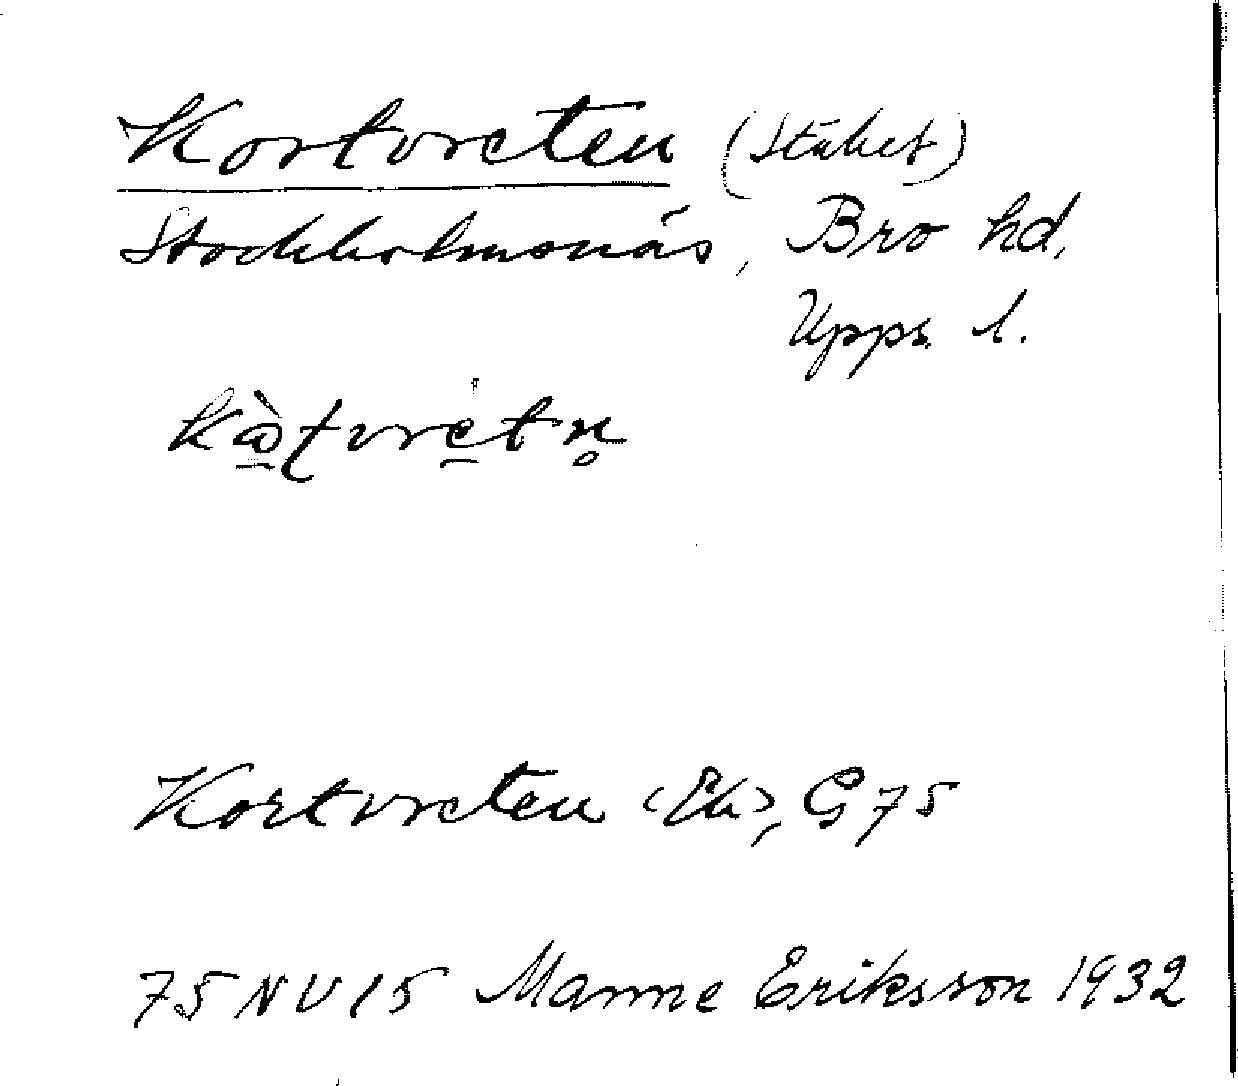 Kortvreten (Stäket)
Stockholmsnäs, Bro hd,
Upps. l.
kàtvrétn̥
Kortvreten (Ek), G 75
75 NV 15 Manne Eriksson 1932